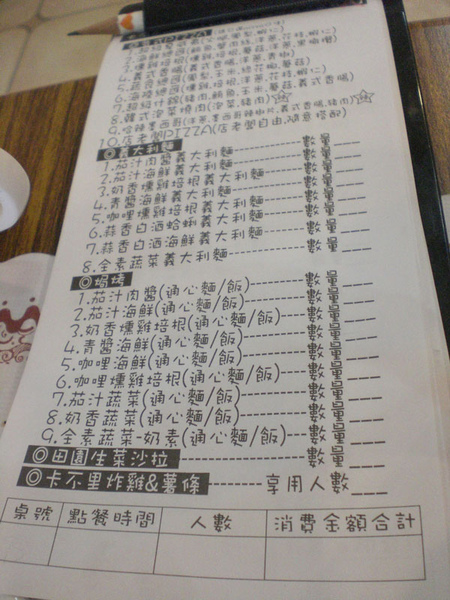 4.義式香腸
5.蔬食總匯(鳳梨,玉米,綠花椰,蘑菇)
7.超級什錦
8.韓式泡菜燒肉(泡菜,豬肉)
10.店老闆PIZZA(店老闆自由,隨意搭配)
◎義大利麵 數量
1.茄汁肉醬義大利麵 數量
2.茄汁海鮮義大利麵 數量
3.奶香燻雞培根義大利麵 數量
4.青醬海鮮義大利麵 數量
5.咖哩燻雞培根義大利麵 數量
6.蒜香白酒蛤蜊義大利麵 數量
7.蒜香白酒海鮮義大利麵 數量
8.全素蔬菜義大利麵
◎焗烤
1.茄汁肉醬(通心麵/飯) 數量
2.茄汁海鮮(通心麵/飯) 數量
3.奶香燻雞培根(通心麵/飯) 數量
4.青醬海鮮(通心麵/飯) 數量
5.咖哩海鮮(通心麵/飯) 數量
6.咖哩燻雞培根(通心麵/飯) 數量
7.茄汁蔬菜(通心麵/飯) 數量
8.奶香蔬菜(通心麵/飯) 數量
9.全素蔬菜-奶素(通心麵/飯) 數量
◎田園生菜沙拉 數量
◎卡不里炸雞&薯條 享用人數
桌號 點餐時間 人數 消費金額合計